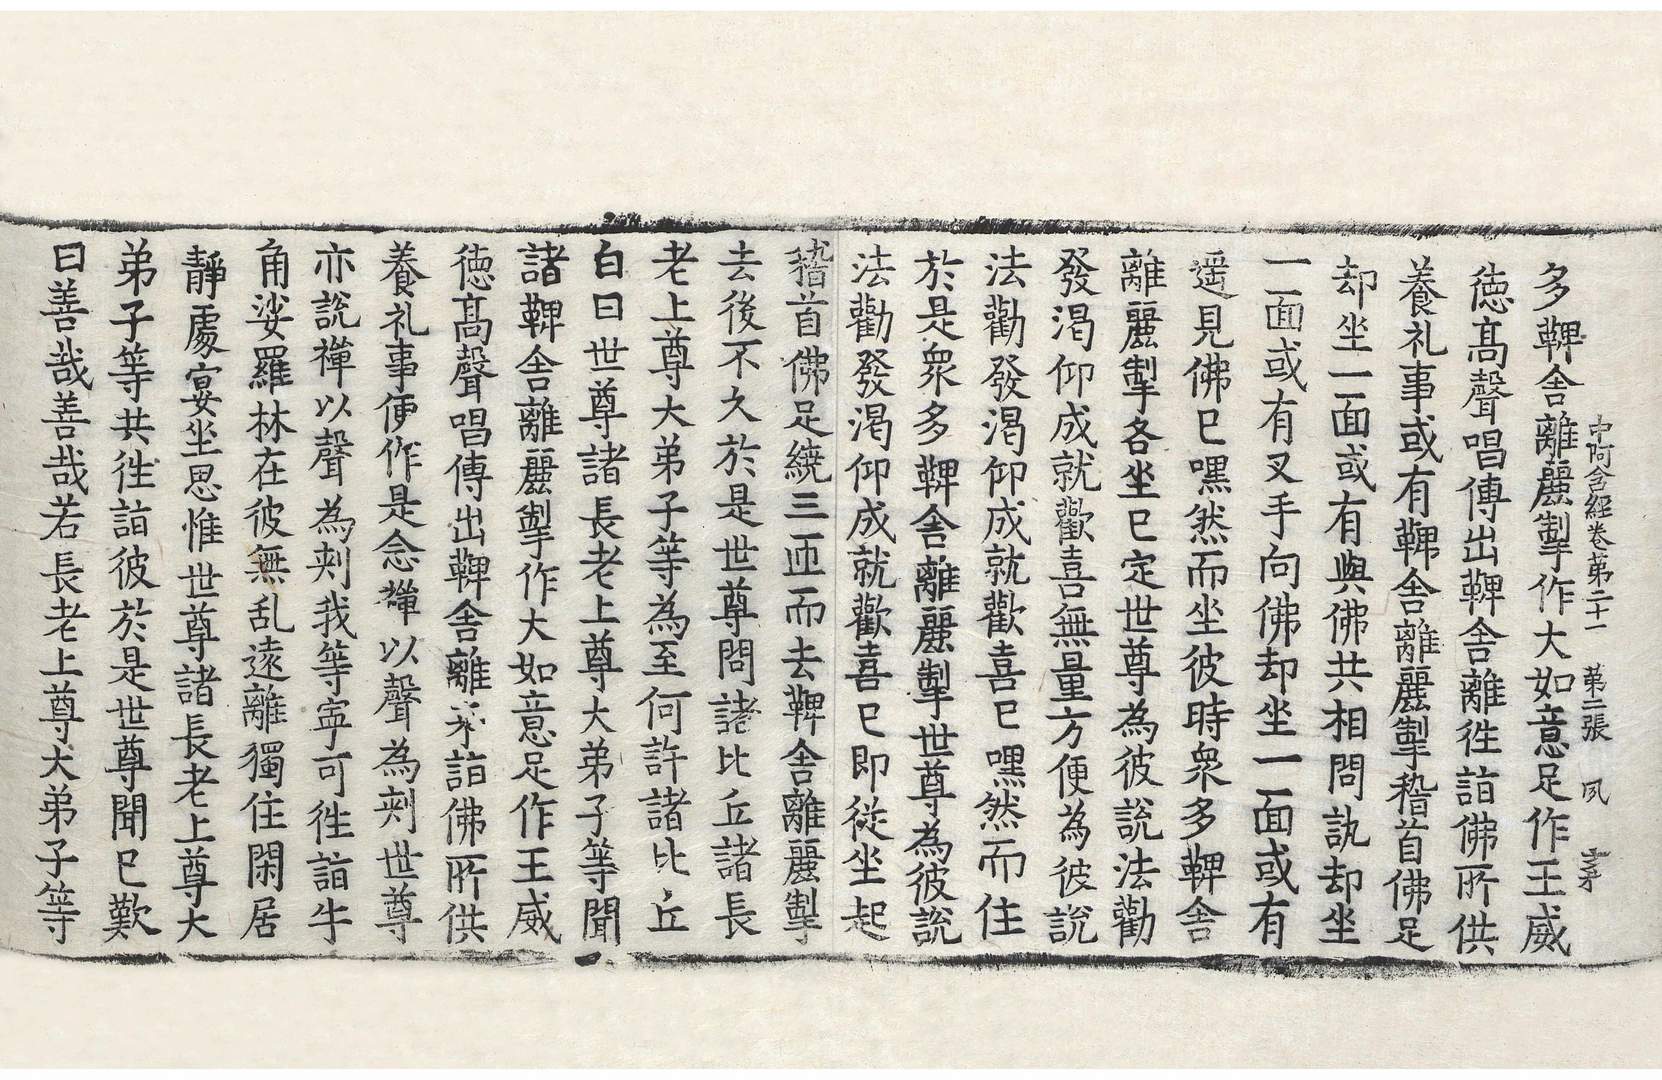 中阿含經卷第二十一 第二張 夙
多鞞舍離麗掣作大如意足作王威
徳髙聲唱傳出鞞舍離徃詣佛所供
養礼事或有鞞舍離麗掣稽首佛足
却坐一面或有與佛共相問訊却坐
一面或有叉手向佛却坐一面或有
遥見佛已嘿然而坐彼時衆多鞞舍
離麗掣各坐已定世尊為彼說法勸
發渴仰成就歡喜無量方便為彼說
法勸發渴仰成就歡喜已嘿然而住
於是衆多鞞舍離麗掣世尊為彼說
法勸發渴仰成就歡喜已即從坐起
稽首佛足繞三匝而去鞞舍離麗掣
去後不久於是世尊問諸比丘諸長
老上尊大弟子等為至何許諸比丘
白曰世尊諸長老上尊大弟子等聞
諸鞞舍離麗掣作大如意足作王威
徳髙聲唱傳出鞞舍離來詣佛所供
養礼事便作是念禪以聲為刺世尊
亦說禪以聲為刺我等寧可徃詣牛
角娑羅林在彼無乱遠離獨住閑居
靜處宴坐思惟世尊諸長老上尊大
弟子等共徃詣彼於是世尊聞已歎
曰善哉善哉若長老上尊大弟子等